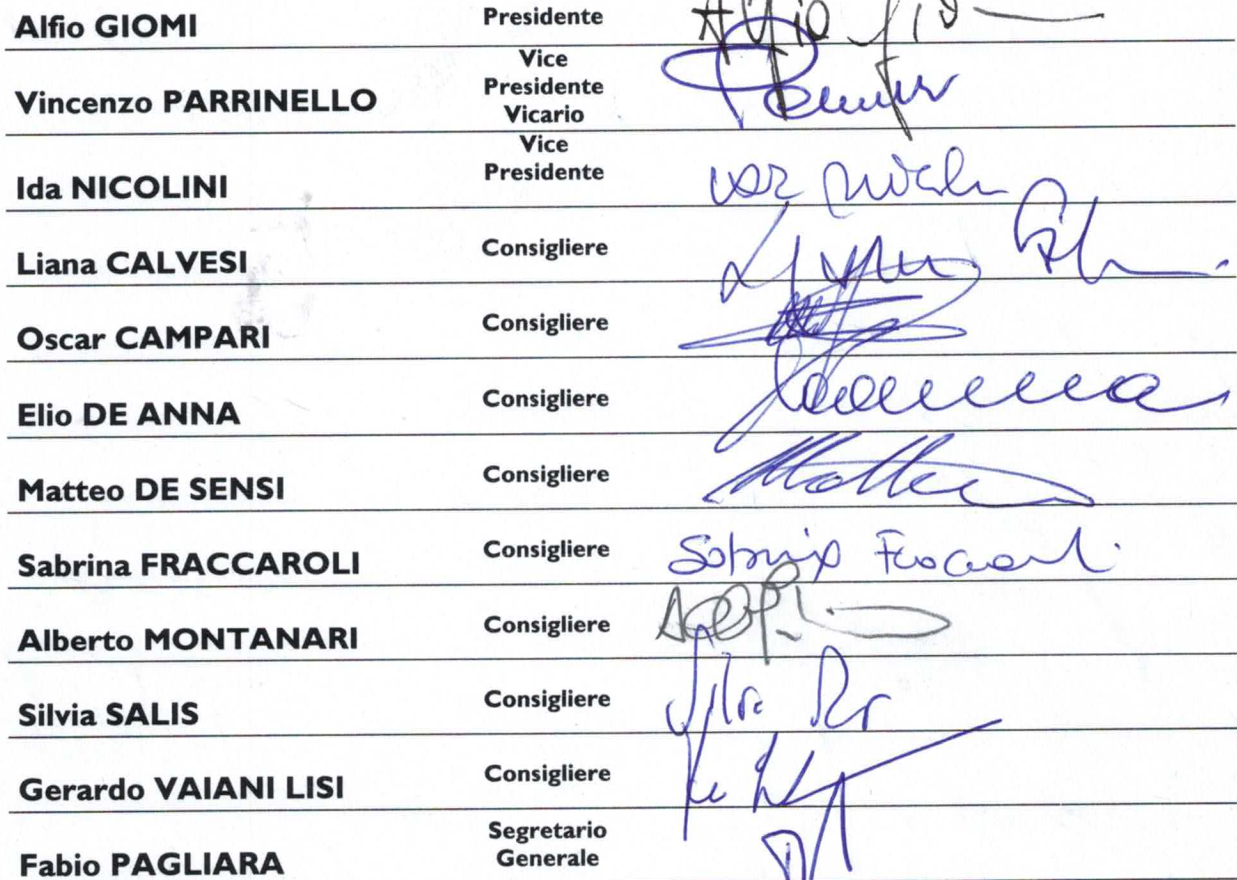 Alfio GIOMI Presidente Alfio Gio
Vincenzo PARRINELLO Vice Presidente Vicario
Ida NICOLINI Vice Presidente
Liana CALVESI Consigliere
Oscar CAMPARI Consigliere
Elio DE ANNA Consigliere
Matteo DE SENSI Consigliere
Sabrina FRACCAROLI Consigliere Sabrina Fraccaroli
Alberto MONTANARI Consigliere
Silvia SALIS Consigliere
Gerardo VAIANI LISI Consigliere
Fabio PAGLIARA Segretario Generale